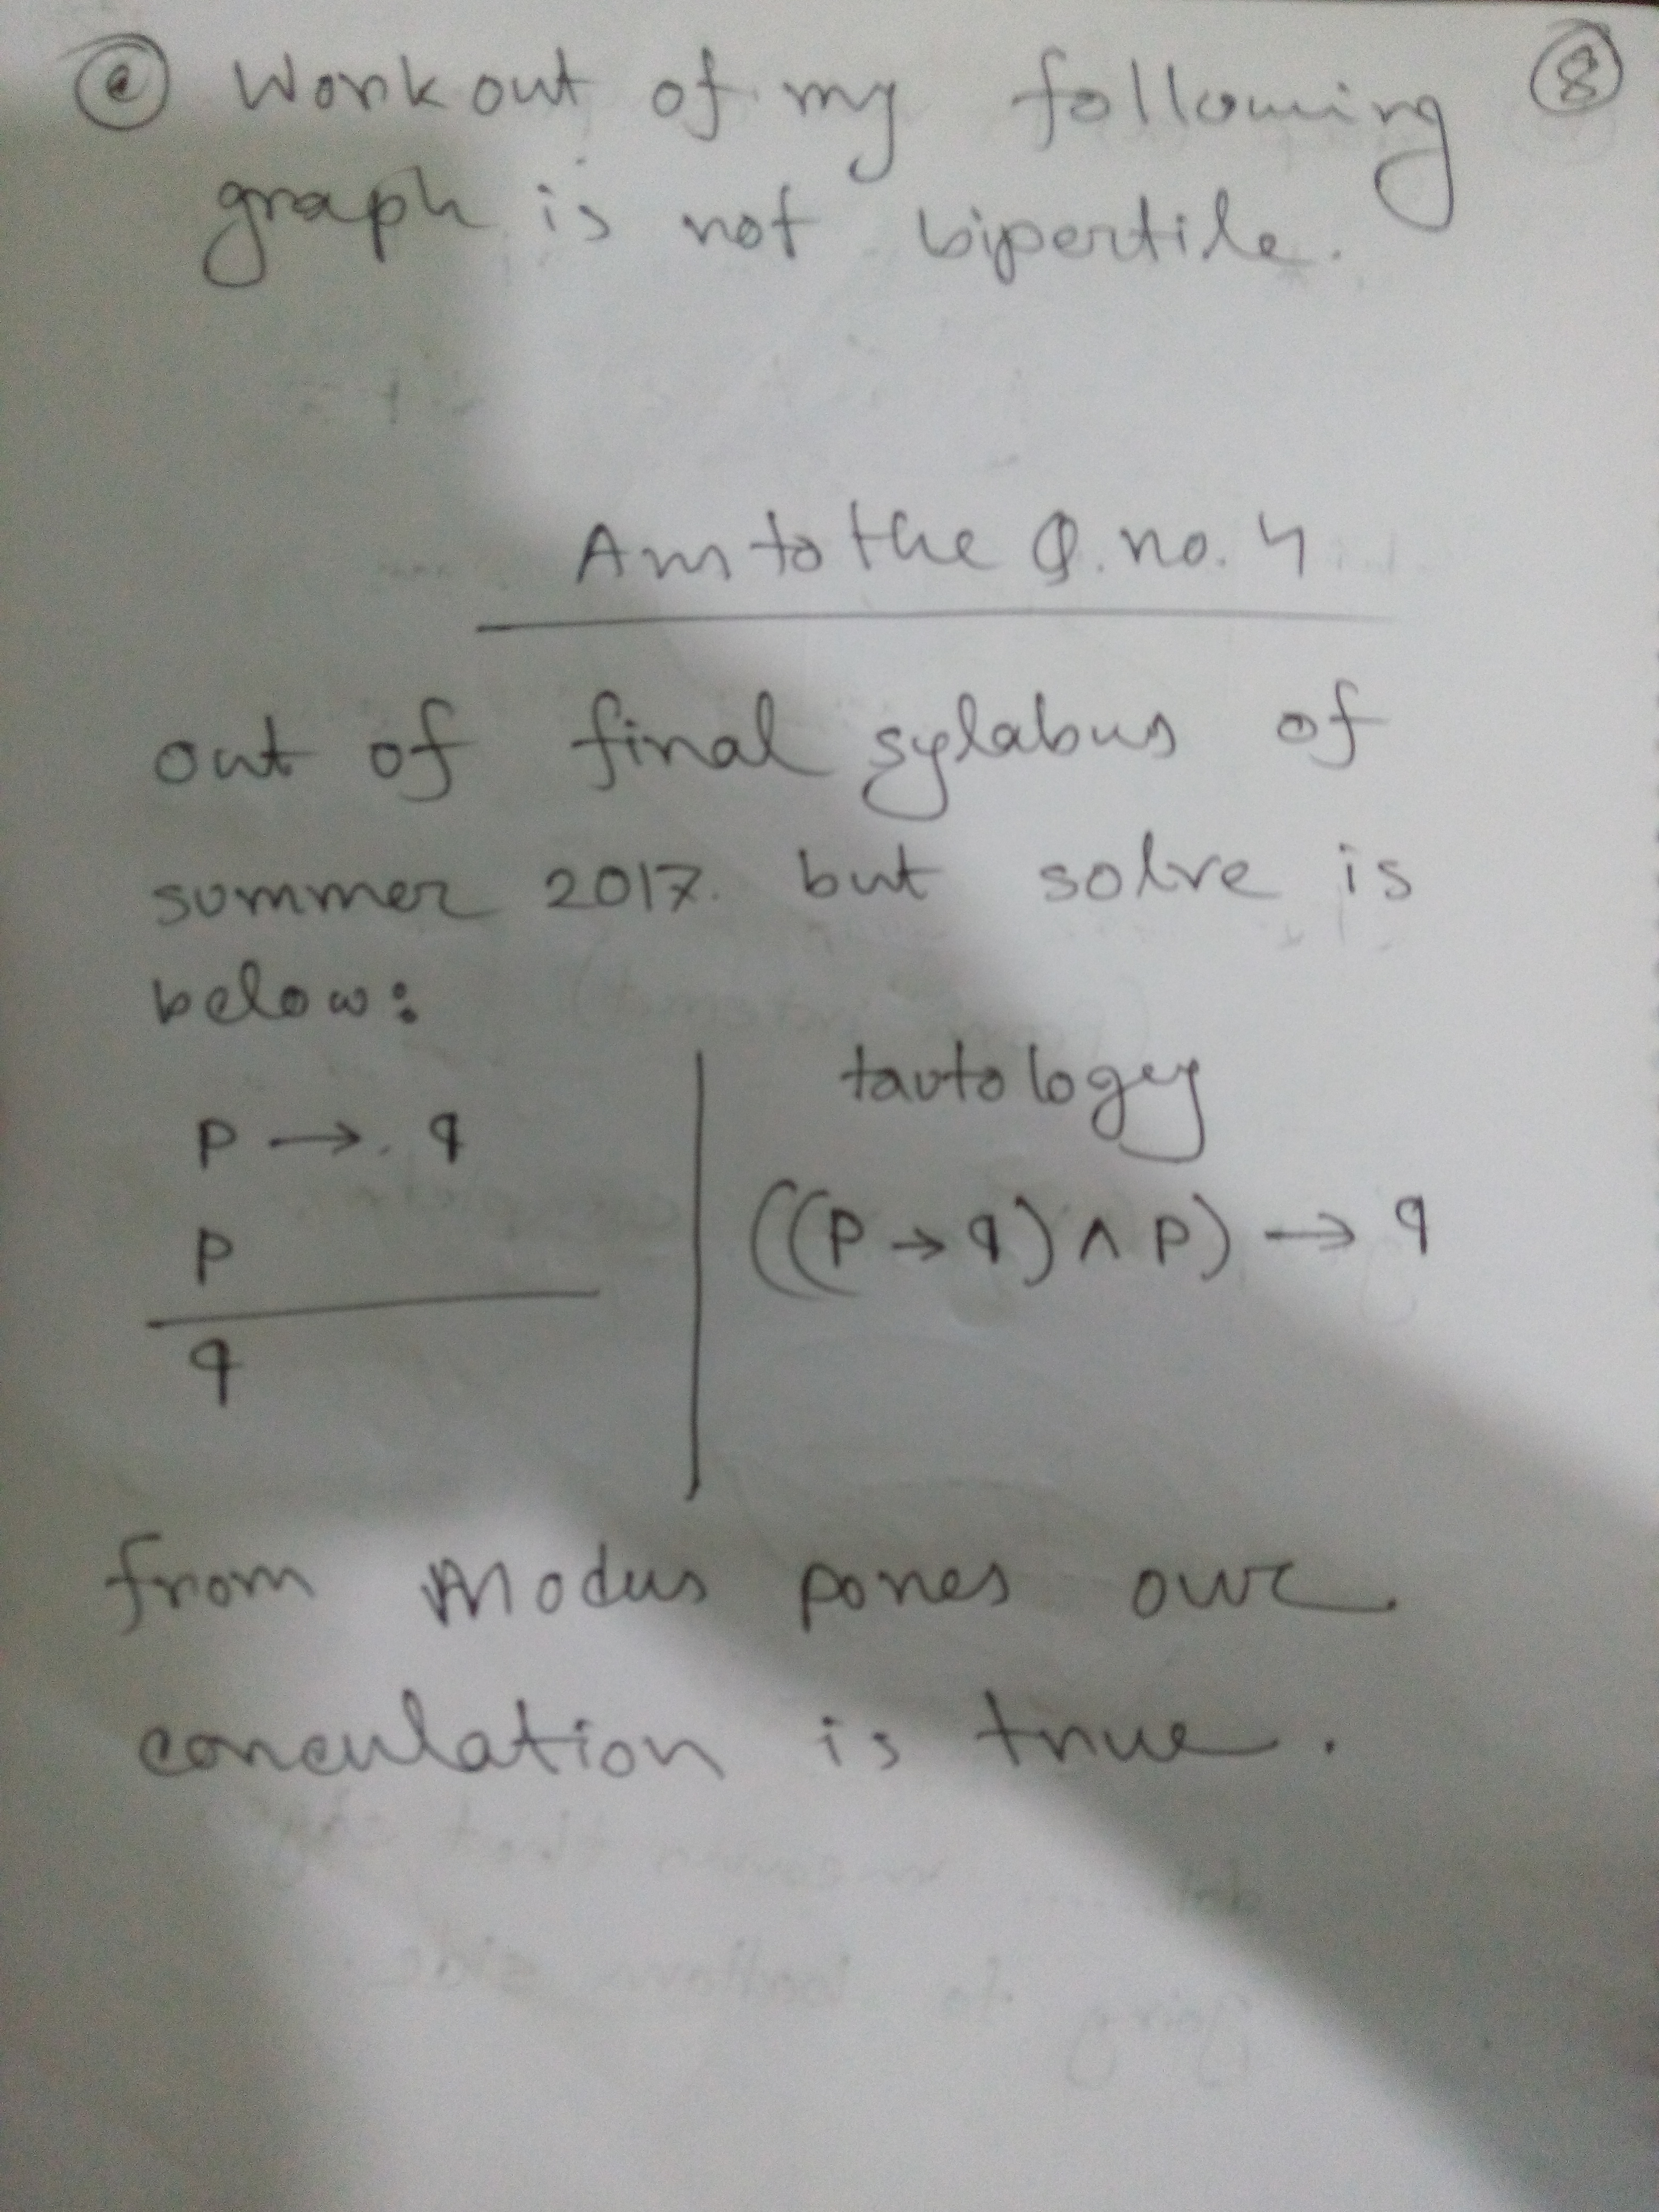 @ Workout of my following 8
graph is not bipertile.
Ans to the Q. no. 4
out of final sylabus of
summer 2017. but solve is
below:
tautology
P → q
((P → q) ∧ P) → q
P
q
from Modus pones our
conculation is true.